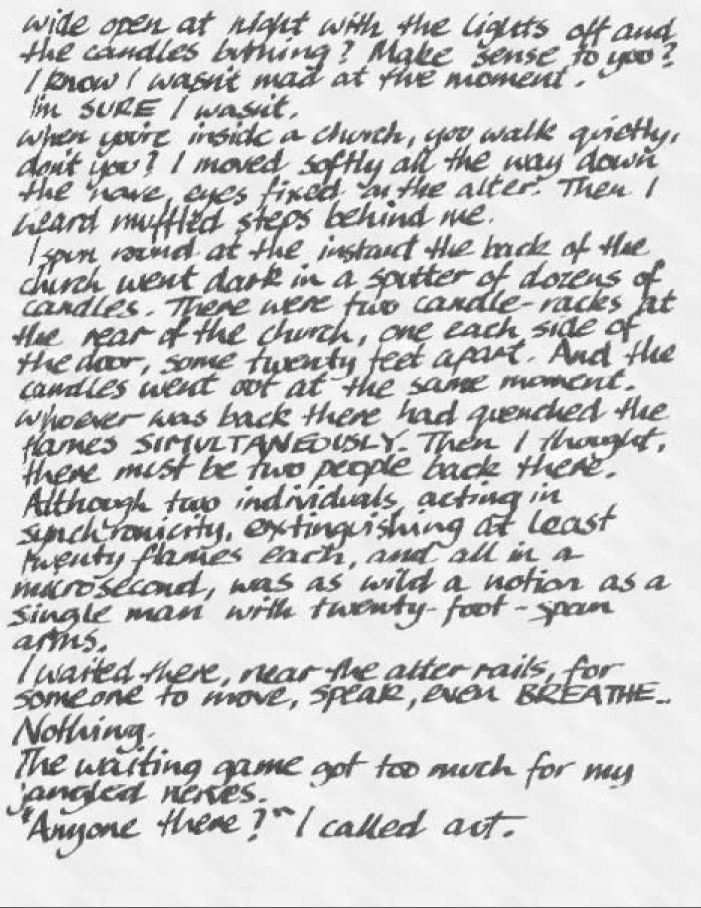 wide open at night with the lights off and
the candles burning? Make sense to you?
I know I wasn't mad at the moment.
I'm SURE I wasn't.
When you're inside a church, you walk quietly,
don't you? I moved softly all the way down
the nave, eyes fixed on the alter. Then I
heard muffled steps behind me.
I spun round at the instant the back of the
church went dark in a sputter of dozens of
candles. There were two candle-racks at
the rear of the church, one each side of
the door, some twenty feet apart. And the
candles went out at the same moment.
Whoever was back there had quenched the
flames SIMULTANEOUSLY. Then I thought,
there must be two people back there.
Although two individuals, acting in
synchronicity, extinguishing at least
twenty flames each, and all in a
microsecond, was as wild a notion as a
single man with twenty-foot-span
arms.
I waited there, near the alter rails, for
someone to move, speak, even BREATHE..
Nothing.
The waiting game got too much for my
jangled nerves.
"Anyone there?" I called out.